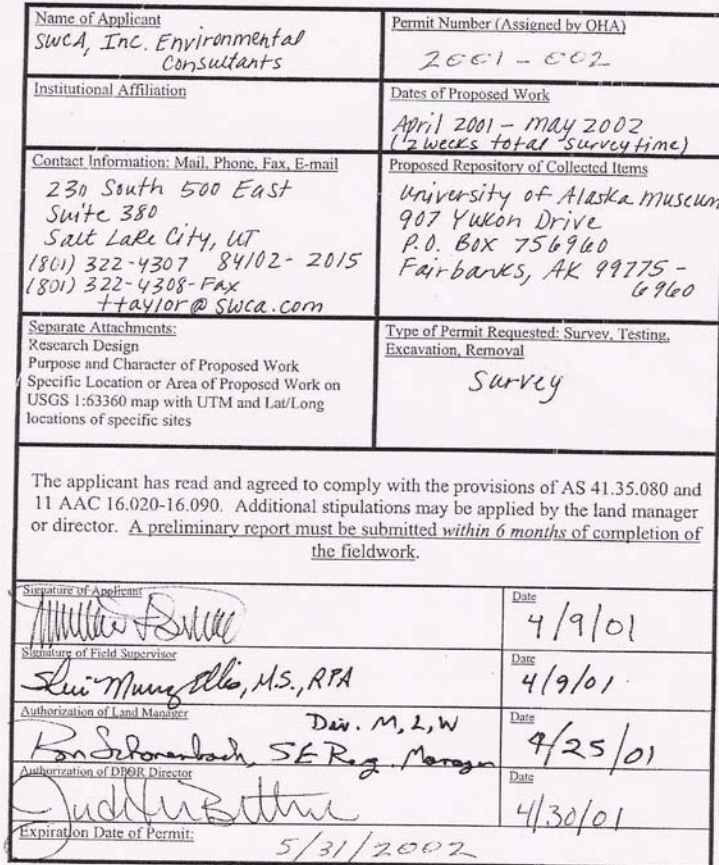 Name of Applicant
SWCA, Inc. Environmental
Consultants
Permit Number (Assigned by OHA)
2001-002
Institutional Affiliation
Dates of Proposed Work
April 2001 - May 2002
(2 weeks total survey time)
Contact Information: Mail, Phone, Fax, E-mail
230 South 500 East
Suite 380
Salt Lake City, UT
(801) 322-4307 84102-2015
(801) 322-4308-Fax
ttaylor@swca.com
Proposed Repository of Collected Items
University of Alaska Museum
907 Yukon Drive
P.O. Box 756960
Fairbanks, AK 99775-
6960
Separate Attachments:
Research Design
Purpose and Character of Proposed Work
Specific Location or Area of Proposed Work on
USGS 1:63360 map with UTM and Lat/Long
locations of specific sites
Type of Permit Requested: Survey, Testing,
Excavation, Removal
Survey
The applicant has read and agreed to comply with the provisions of AS 41.35.080 and
11 AAC 16.020-16.090. Additional stipulations may be applied by the land manager
or director. A preliminary report must be submitted within 6 months of completion of
the fieldwork.
Signature of Applicant
Date
4/9/01
Signature of Field Supervisor
Ellis, M.S., RPA
Date
4/9/01
Authorization of Land Manager
Div. M, L, W
Ron Schonenbach, SE Reg. Manager
Date
4/25/01
Authorization of DPOR Director
Date
4/30/01
Expiration Date of Permit:
5/31/2002